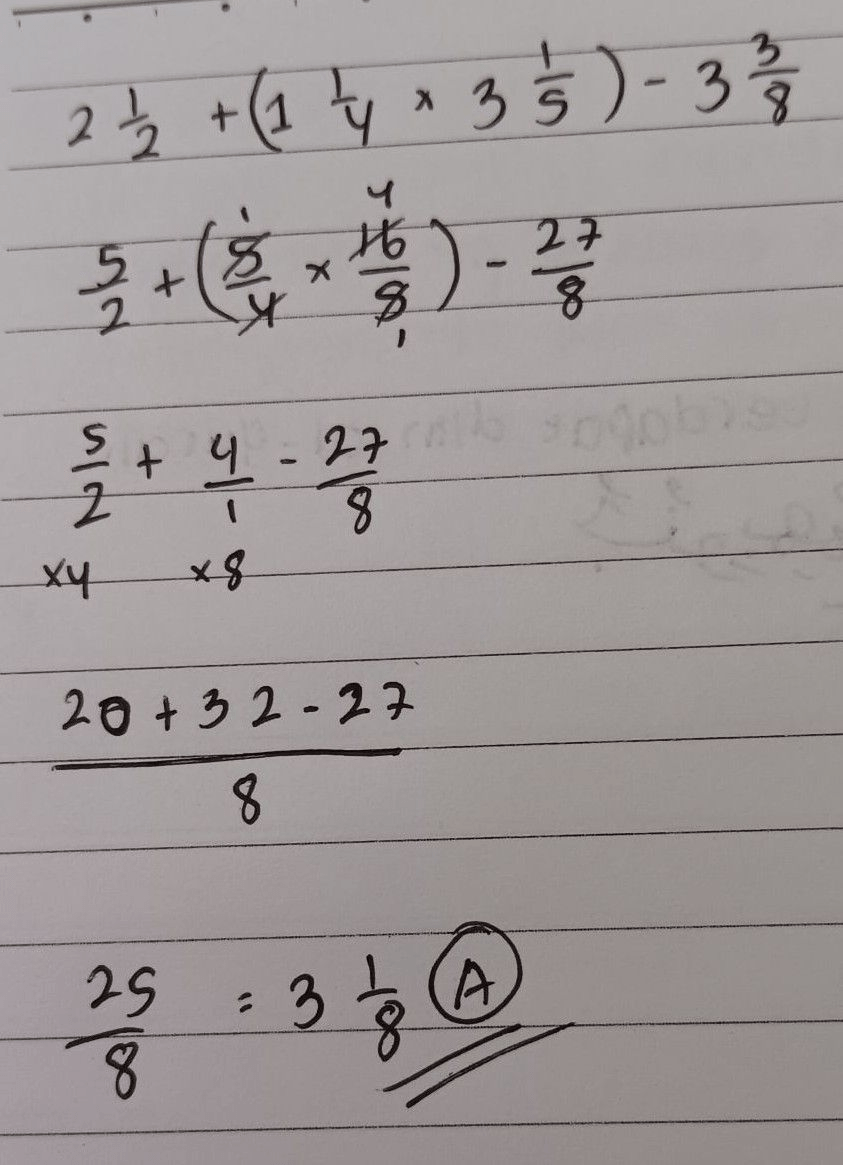 2 1/2 + (1 1/4 × 3 1/5) - 3 3/8
1 4
5/2 + (5/4 × 16/5) - 27/8
1
5/2 + 4/1 - 27/8
×4 ×8
20 + 32 - 27
8
25/8 = 3 1/8 A